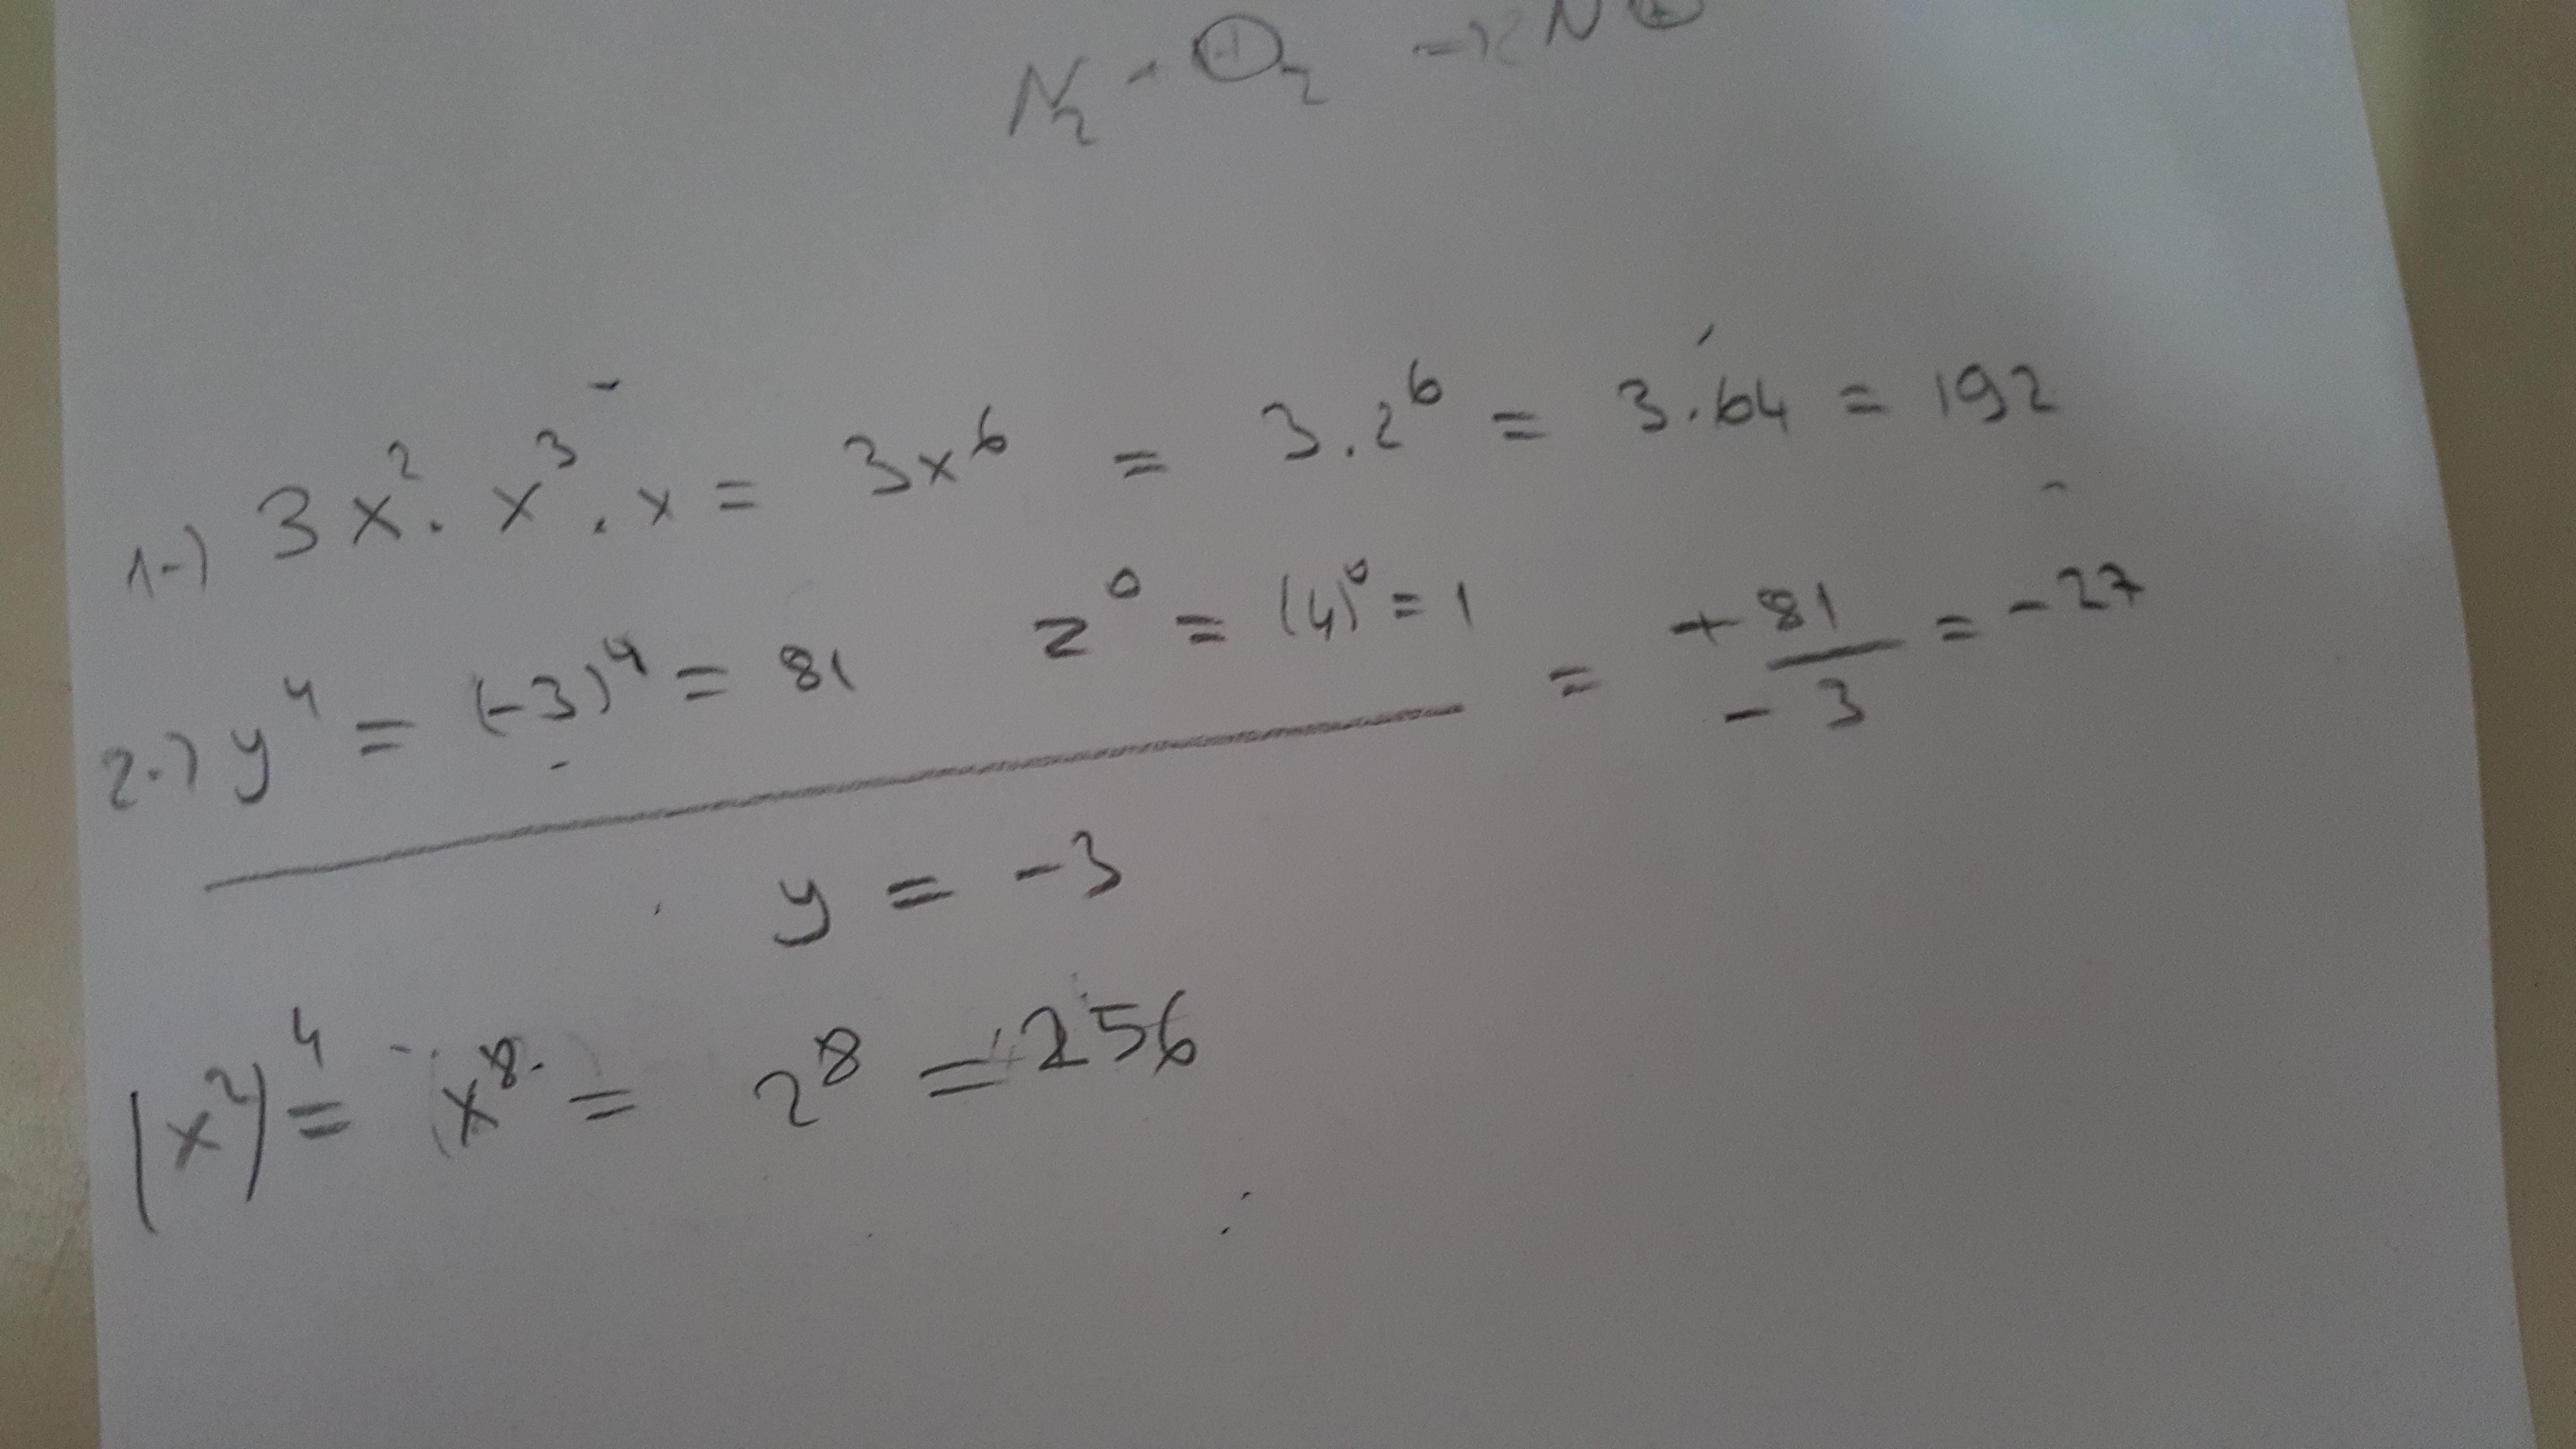 N₂ + O₂ → 2N
1-) 3x² . x³ . x = 3x⁶ = 3.2⁶ = 3.64 = 192
2-) y⁴ = (-3)⁴ = 81 z⁰ = (4)⁰ = 1 = +81 / -3 = -27
y = -3
(x²)⁴ = x⁸ = 2⁸ = 256